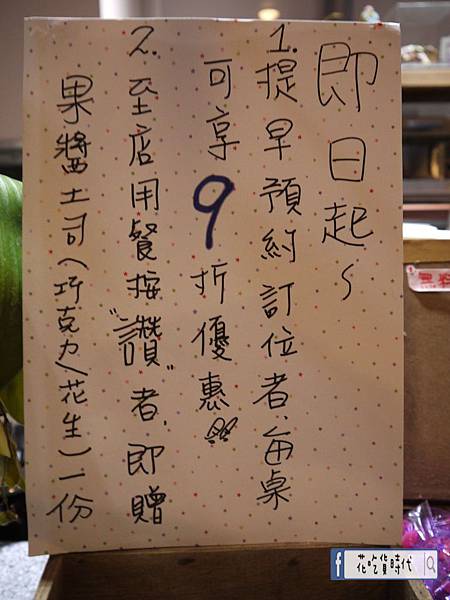 即日起~
1.提早預約訂位者、每桌
可享9折優惠
2.至店用餐按"讚"者,即贈
果醬土司(巧克力/花生)一份
f 花吃貨時代